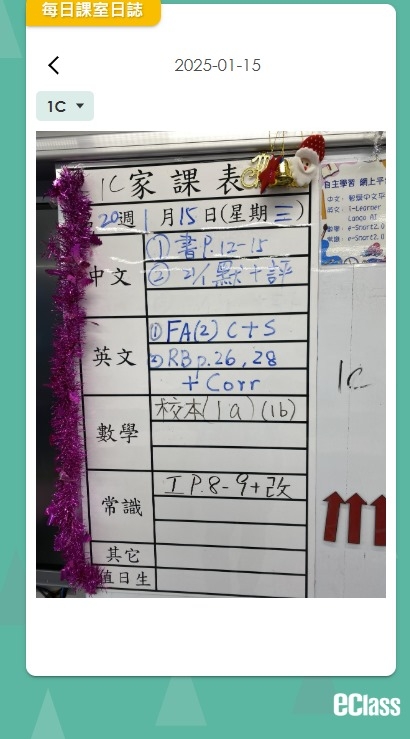 每日課室日誌
2025-01-15
1C
1C家課表
20週 1月15日(星期三)
中文
① 書P.12-15
② 21/1 默+評
英文
① FA(2) C+S
② RB p.26, 28
+ Corr
數學
校本(1a)(1b)
常識
工 P.8-9+改
其它
值日生
自主學習 網上平
中文:
英文: i-Learner
Lanco AI
e-Smart2.0
e-Smart2.0
1C
eClass